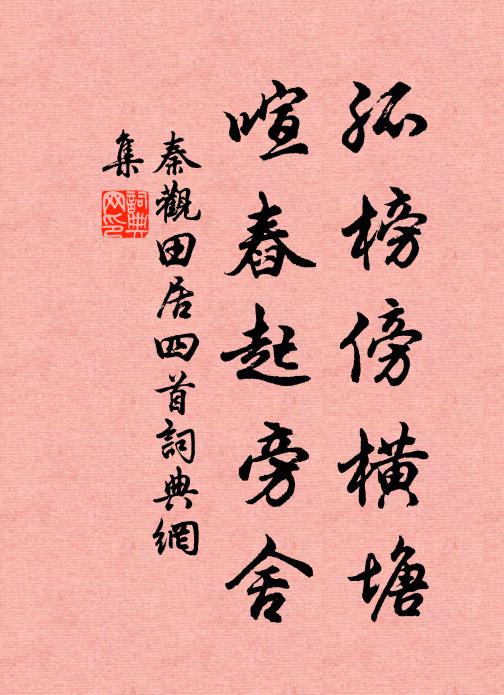 孤榜傍橫塘
喧舂起旁舍
秦觀田居四首詞典網
集
詞典網印